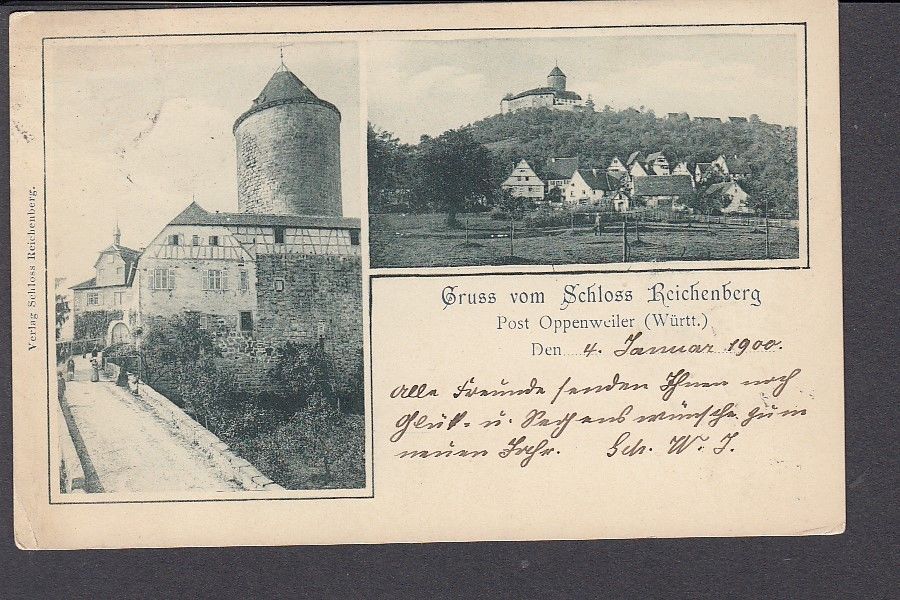 Verlag Schloss Reichenberg.
Gruss vom Schloss Reichenberg
Post Oppenweiler (Württ.)
Den 4. Januar 1900.
Alle Freunde senden Ihnen noch
Glük- u. Seegenswünsche zum
neuen Jahr. Sch. W. J.